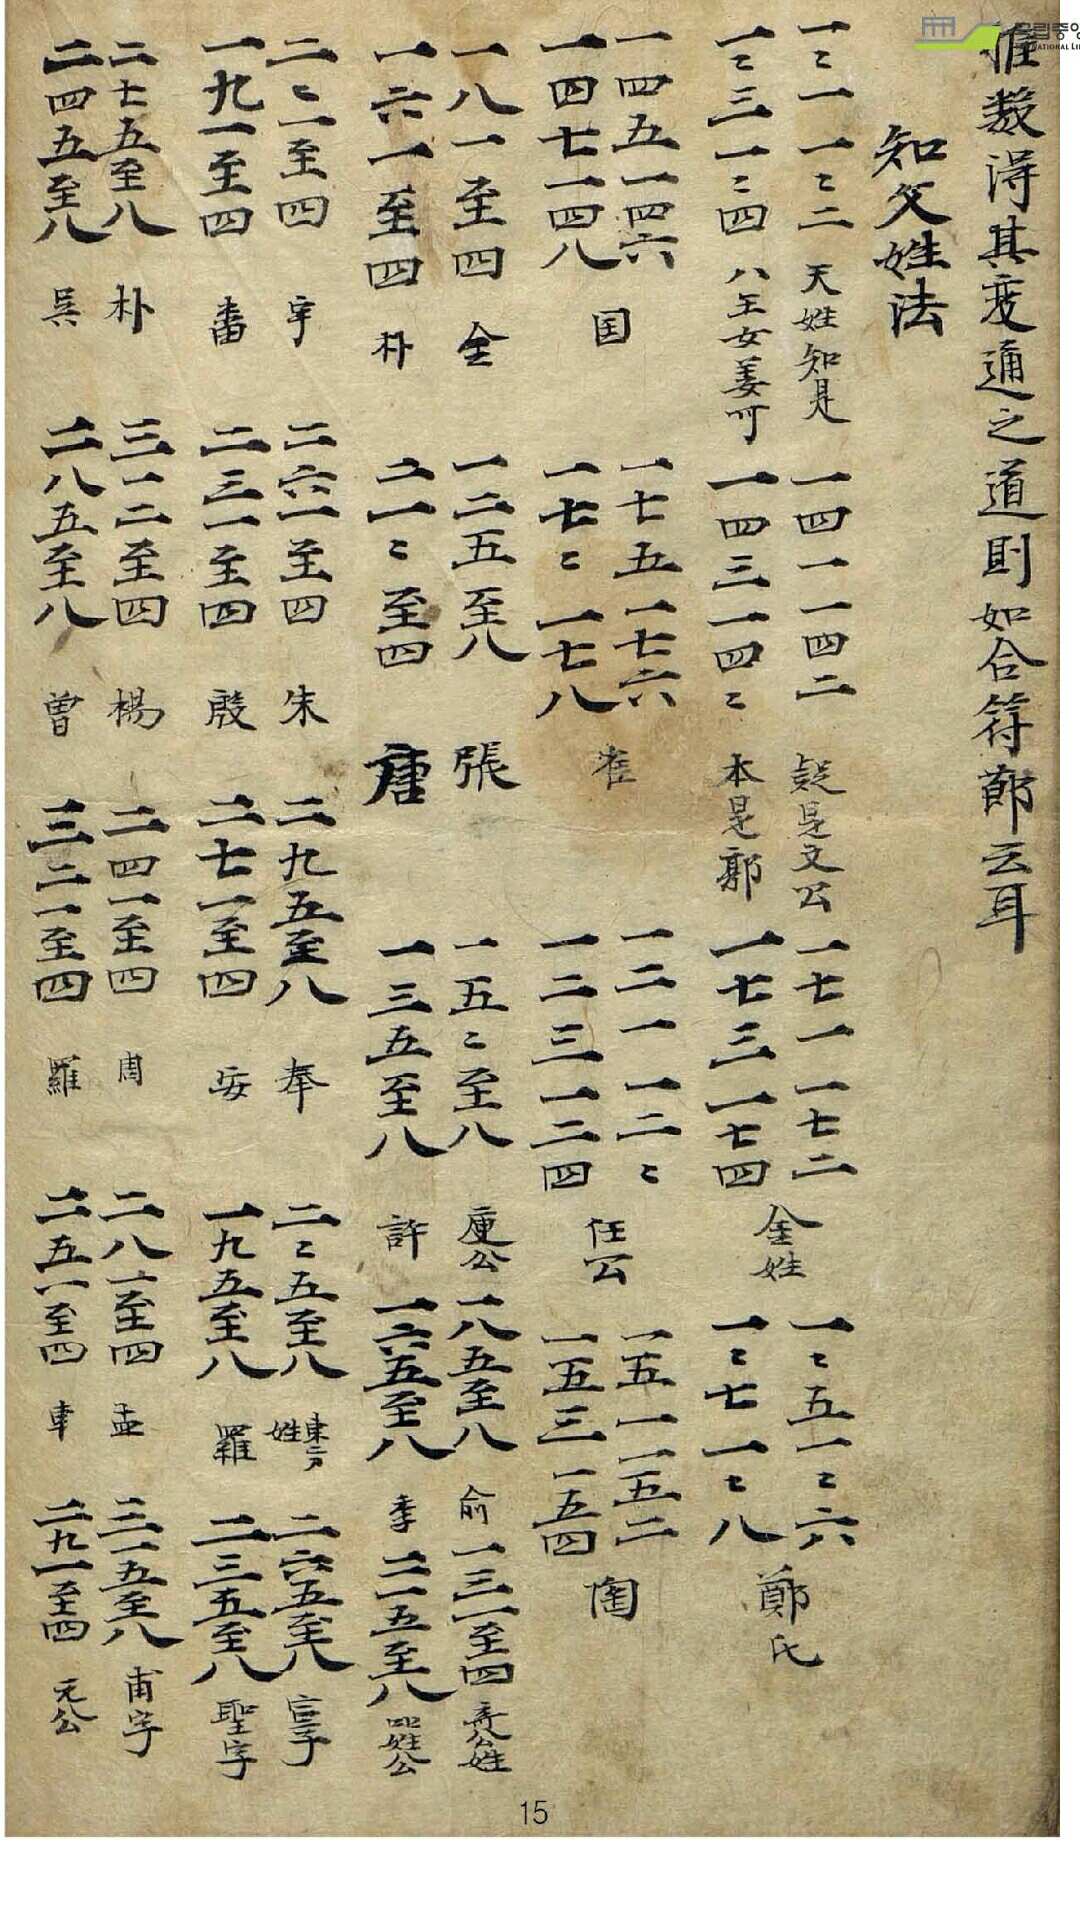 推数得其变通之道則如合符郞云耳
知父姓法
一ミ一 一ミ二 天姓知是
一ミ三 一ミ四 八王女姜可
一四一 一四二 疑是文公
一四三 一四ミ 本是郭
一七一 一七二
一七三 一七四
金姓
一ミ五 一ミ六
一ミ七 一ミ八
鄭氏
一四五 一四六
一四七 一四八
国
一七五 一七六
一七ミ 一七八
崔
一二一 一二ミ
一二三 一二四
任公
一五一 一五二
一五三 一五四
陶
一八一至四 全
一六一至四 朴
一二五至八 張
二一ミ至四 唐
一五ミ至八 庾公
一三五至八 許
一八五至八 俞
一六五至八 季
一三一至四 公姓
二一五至八 姓公
二ミ一至四 宇
一九一至四 番
二六一至四 朱
二三一至四 殷
二九五至八 奉
二七一至四 安
二ミ五至八 東方姓
一九五至八 羅
二六五至八
二三五至八 聖字
二七五至八 朴
二四五至八 吳
三一二至四 楊
二八五至八 曽
二四一至四 周
三二一至四 羅
二八一至四 孟
二五一至四 車
三一五至八 甫字
二九一至四 元公
15